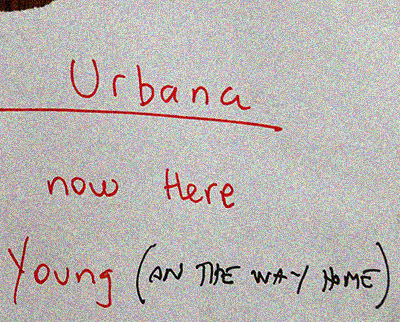 Urbana
now Here
Young (ON THE WAY HOME)